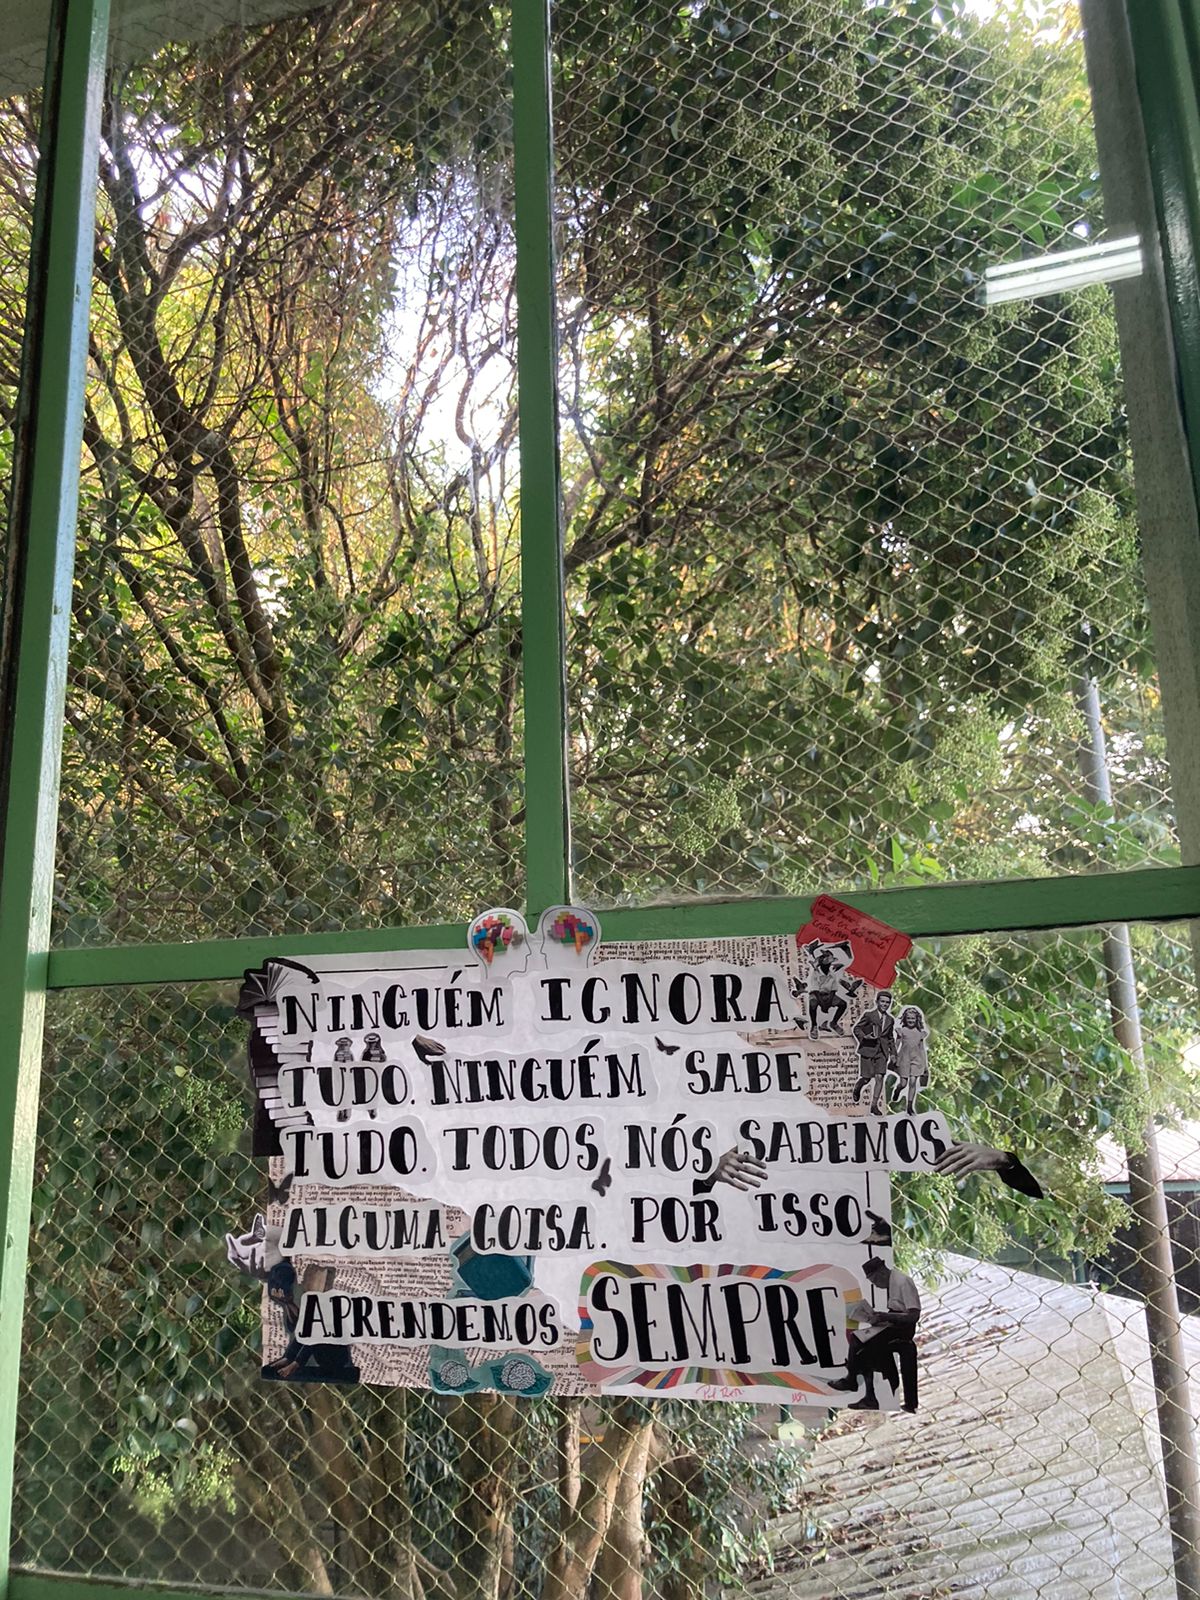 NINGUÉM IGNORA
TUDO. NINGUÉM SABE
TUDO. TODOS NÓS SABEMOS
ALGUMA COISA. POR ISSO
APRENDEMOS SEMPRE